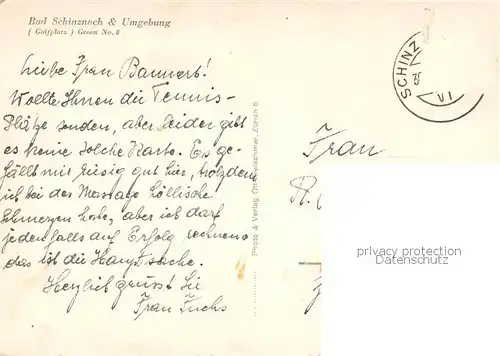 Bad Schinznach & Umgebung
( Golfplatz ) Green No. 8
Liebe Frau Banners!
Wollte Ihnen die Tennis-
Plätze senden, aber leider gibt
es keine solche Karte. Es ge-
fällt mir riesig gut hier, trotzdem
ich bei der Massage höllische
Schmerzen habe, aber ich darf
jedenfalls auf Erfolg rechnen u.
das ist die Hauptsache.
Herzlich grüsst Sie
Frau Fuchs
Photo & Verlag Otto Zürich 6
SCHINZ
VI
Frau
privacy protection
Datenschutz